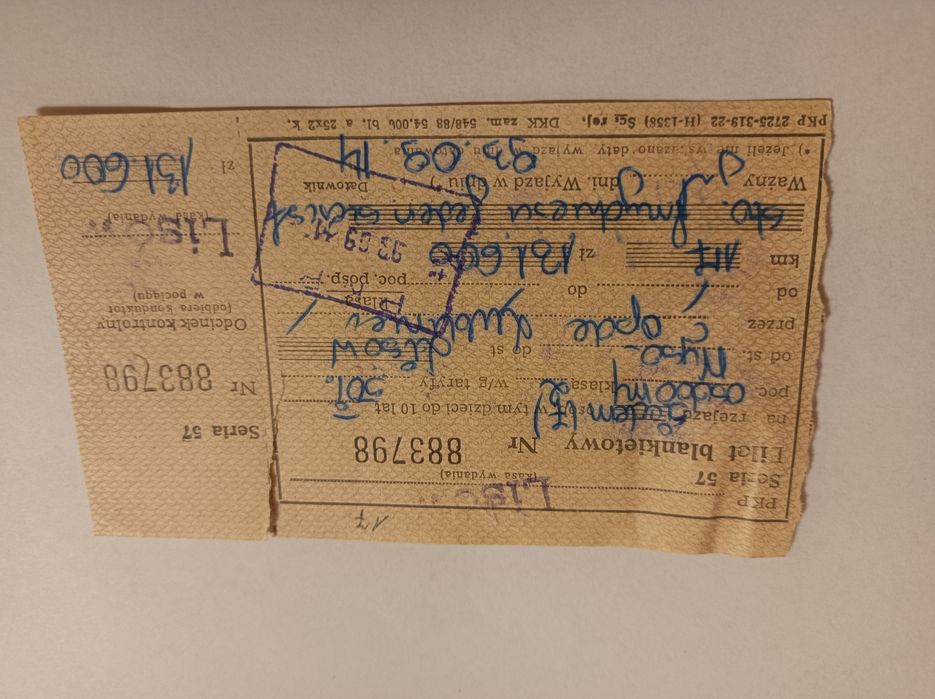 PKP
Lisów
(kasa wydania)
17
Seria 57
Bilet blankietowy Nr 883798
na przejazd siedem (7) osób w tym dzieci do 10 lat
poc. osobowy klasa 2 w/g taryfy 50%
od st. Nysa do st. Lisów
przez Opole Lubliniec
od do
klasa
poc. posp.
km 117 zł 131.600
sto jeden
Ważny dni. Wyjazd w dniu
93.09.14
Datownik
93 09 14
*) Jeżeli nie wskazano daty wyjazd w dniu datowania
PKP 2725-319-22 (H-1358) Sg. roj. DKK zam. 548/88 54.000 bl. a 25x2 k.
Seria 57
Nr 883798
Odcinek kontrolny
(odbiera konduktor
w pociągu)
Lisów
(kasa wydania)
zł 131.600